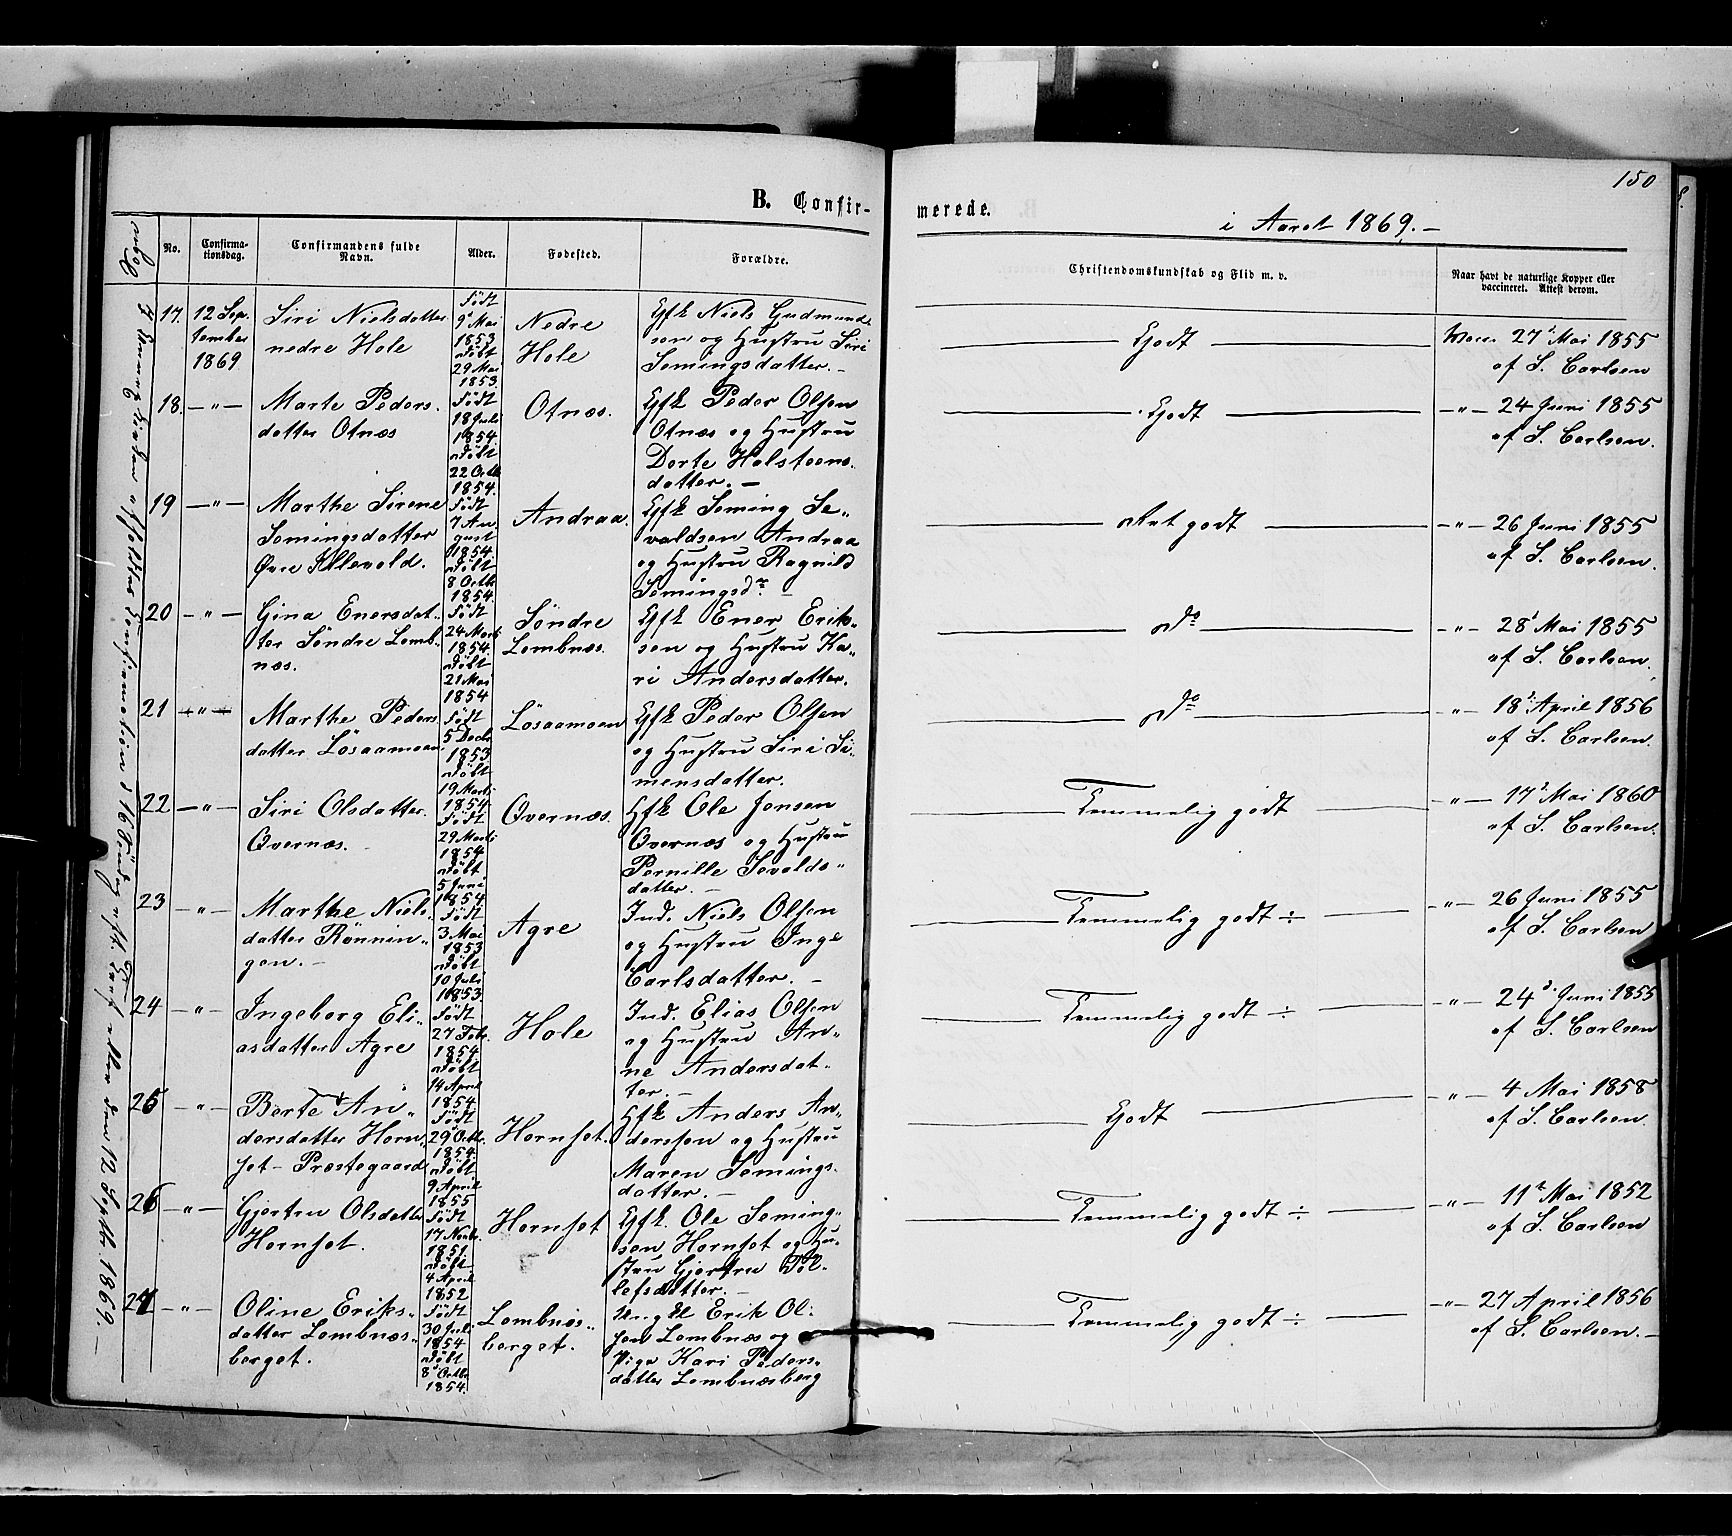 150
B. Confir-
merede.
i Aaret 1869.-
No.
Confirma-
tionsdag.
Confirmandens fulde
Navn.
Alder.
Fødested.
Forældre.
Christendomskundskab og Flid m. v.
Naar havt de naturlige Kopper eller
vaccineret. Attest derom.
17. 12 Sep-
tember
1869.
Siri Nielsdatter
nedre Hole
Født
9 Mai
1853
Døbt
29 Mai
1853.
Nedre
Hole
Gfk Niels Gudmund-
sen og Hustru Siri
Semingsdatter. -
Godt
Vacc. 27 Mai 1855
af S. Carlsen
18. - " -
Marte Peders-
datter Otnæs
Født
18 Juli
1854.
Døbt
22 Octb.
1854.
Otnæs.
Gfk Peder Olsen
Otnæs og Hustru
Dorte Halsteens-
datter. -
Godt
- " - 24 Juni 1855
af S. Carlsen.
19 - " -
Marthe Sirene
Semingsdatter
Øvre Illevold.
Født
7 Au-
gust
1854.
Døbt
8 Octb.
1854.
Andraa.
Gfk Seming Se-
valdsen Andraa
og Hustru Ragnild
Semingsdr. -
Met godt
- " - 26 Juni 1855
af S. Carlsen.
20 - " -
Gina Enersdat-
ter Søndre Lomb-
næs.
Født
24 Marts
1854.
Døbt
21 Mai
1854
Søndre
Lombnæs.
Gfk Ener Erik-
sen og Hustru Ka-
ri Andersdatter.
Do
- " - 28 Mai 1855
af S. Carlsen.
21 - " -
Marthe Peders-
datter Løsaamoen
Født
5 Decb.
1853
Døbt
19 Marts
1854
Løsaamoen
Gfk Peder Olsen
og Hustru Siri Si-
mensdatter.
Do
- " - 18 April 1856
af S. Carlsen.
22 - " -
Siri Olsdatter
Øvernæs.
Født
29 Marts
1854
Døbt
5 Juni
1854
Øvernæs.
Gfk Ole Jonsen
Øvernæs og Hustru
Pernille Sevalds-
datter. -
Temmelig godt
- " - 17 Mai 1860
af S. Carlsen.
23 - " -
Marthe Niels-
datter Rønnin-
gen. -
Født
3 Mai
1853
Døbt
10 Juli
1853.
Agre
Ind. Niels Olsen
og Hustru Inge
Carlsdatter. -
Temmelig godt ÷
- " - 26 Juni 1855
af S. Carlsen
24 - " -
Ingeborg Eli-
asdatter Agre
Født
27 Febr.
1854
Døbt
14 April
1854.
Hole
Ind. Elias Olsen
og Hustru An-
ne Andersdat-
ter. -
Temmelig godt ÷
- " - 24 Juni 1855
af S. Carlsen
25 - " -
Berte An-
dersdatter Horn-
set - Præstegaard
Født
29 Octb.
1854.
Døbt
9 April
1855
Hornset.
Gfk Anders An-
dersen og Hustru
Maren Semings-
datter. -
Godt
- " - 4 Mai 1858
af S. Carlsen.
26 - " -
Gjertru Olsdatter
Hornset.
Født
17 Novbr.
1851.
Døbt
4 April
1852
Hornset
Gfk. Ole Seming-
sen Hornset og Hu-
stru Gjertru Tol-
lefsdatter. -
Temmelig godt ÷
- " - 11 Mai 1852
af S. Carlsen
27 - " -
Oline Eriks-
datter Lombnæs-
berget.
Født
30 Juli
1854.
Døbt
8 Octb.
1854.
Lombnæs-
berget.
Ungkl Erik Ol-
sen Lombnæs og
Pige Kari Peders-
datter Lombnæsberg
Temmelig godt ÷
- " - 27 April 1856
af S. Carlsen. -